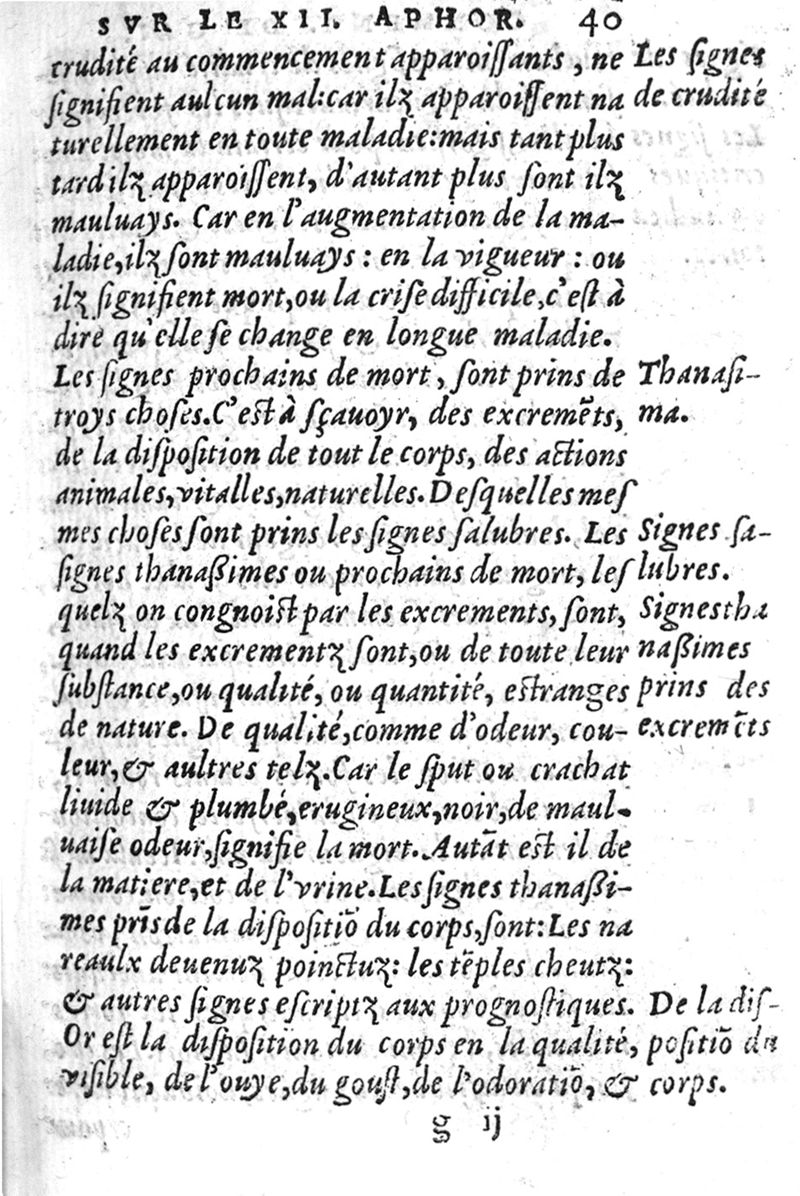 SVR LE XII. APHOR. 40
crudité au commencement apparoiſſants, ne
ſignifient aulcun mal:car ilz apparoiſſent na
turellement en toute maladie:mais tant plus
tard ilz apparoiſſent, d'autant plus ſont ilz
mauluays. Car en l'augmentation de la ma-
ladie,ilz ſont mauluays : en la vigueur : ou
ilz ſignifient mort,ou la criſe difficile,c'eſt à
dire qu'elle ſe change en longue maladie.
Les ſignes prochains de mort, ſont prins de
troys choſes.C'eſt à ſçauoyr, des excremẽts,
de la diſpoſition de tout le corps, des actions
animales,vitalles,naturelles.Deſquelles meſ
mes choſes ſont prins les ſignes ſalubres. Les
ſignes thanaßimes ou prochains de mort, leſ
quelz on congnoiſt par les excrements, ſont,
quand les excrementz ſont,ou de toute leur
ſubſtance,ou qualité, ou quantité, eſtranges
de nature. De qualité,comme d'odeur, cou-
leur,& aultres telz.Car le ſput ou crachat
liuide & plumbé,erugineux,noir,de maul-
uaiſe odeur,ſignifie la mort.Autãt eſt il de
la matiere,et de l'vrine.Les ſignes thanaßi-
mes prĩs de la diſpoſitiõ du corps,ſont:Les na
reaulx deuenuz poinctuz: les tẽples cheutz:
& autres ſignes eſcriptz aux prognoſtiques.
Or eſt la diſpoſition du corps en la qualité,
viſible, de l'ouye,du gouſt,de l'odoratiõ, &
g ij
Les ſignes
de crudité
Thanaſi-
ma.
Signes ſa-
lubres.
Signes tha
naßimes
prins des
excremẽts
De la diſ-
poſitiõ du
corps.